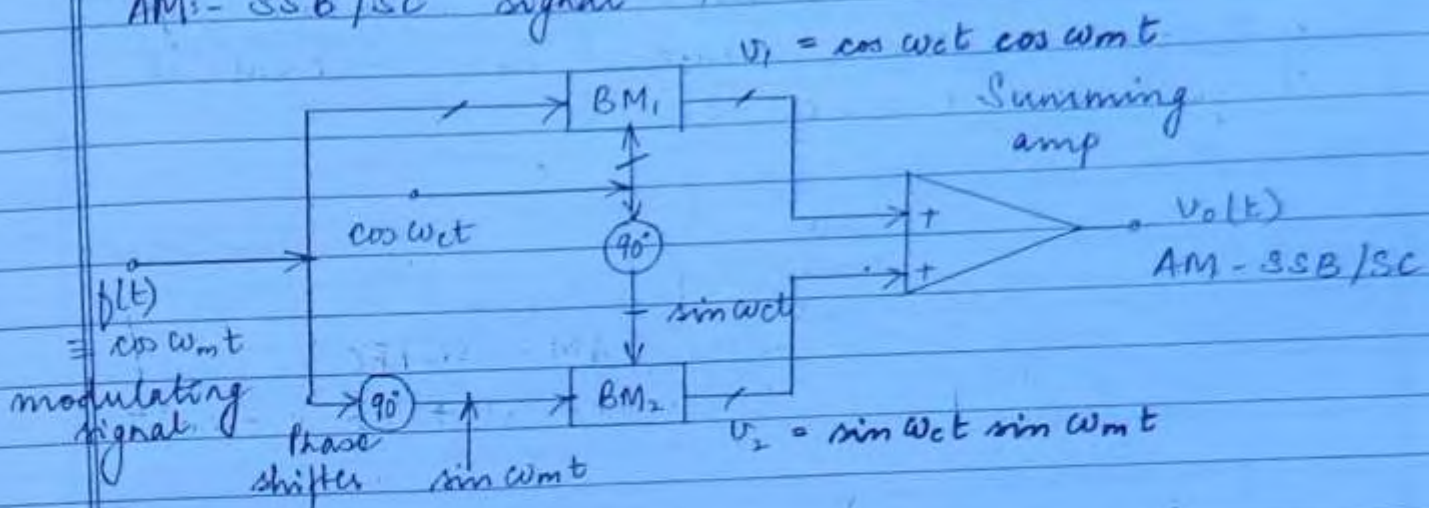 AM:- SSB/SC signal
v₁ = cos ωct cos ωmt
BM₁
Summing
amp
cos ωct
90°
+
v₀(t)
AM - SSB/SC
+
f(t)
= cos ωmt
modulating
signal.
sin ωct
90°
Phase
shifter
sin ωmt
BM₂
v₂ = sin ωct sin ωmt